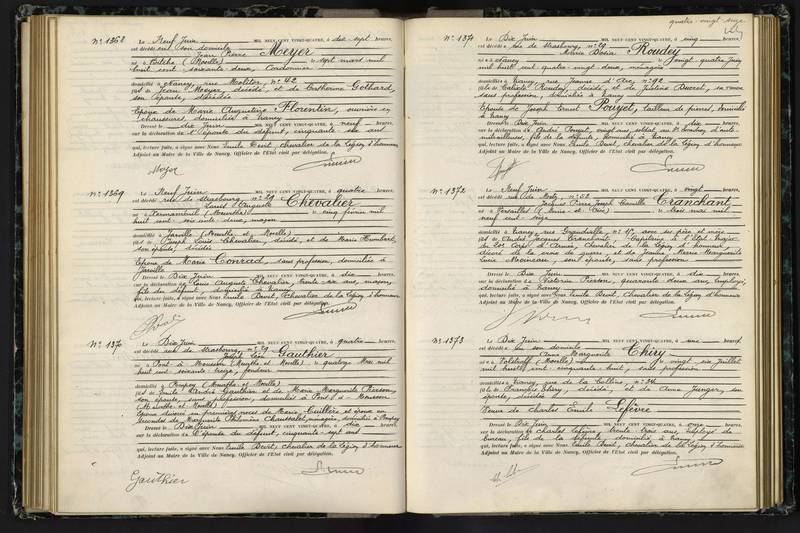 N° 1368
Le Neuf Juin MIL NEUF CENT VINGT-QUATRE, à dix sept heures,
est décédé en son domicile
Jean Pierre Meyer
né à Bitche (Moselle) le sept mars mil
huit cent soixante deux, Cordonnier
domicilié à Nancy, rue Molitor, n° 42
fils de Jean Meyer, décédé, et de Catherine Gothard,
son épouse, décédée
Epoux de Marie Augustine Florentin, ouvrière en
chaussures domiciliée à Nancy
Dressé le dix Juin MIL NEUF CENT VINGT-QUATRE, à neuf heures,
sur la déclaration de l'épouse du défunt, cinquante six ans
qui, lecture faite, a signé avec Nous Emile Bevel, chevalier de la Légion d'honneur
Adjoint au Maire de la Ville de Nancy, Officier de l'Etat civil par délégation.
Meyer
N° 1369
Le Neuf Juin MIL NEUF CENT VINGT-QUATRE, à quatre heures,
est décédé rue de Strasbourg, n° 29
Louis Auguste Chevalier
né à Xermaménil (Meurthe) le cinq février mil
huit cent, maçon
domicilié à Jarville (Meurthe et Moselle)
fils de Joseph Louis Chevalier, décédé, et de Marie Humbert,
son épouse, décédée
Epoux de Marie Conrad, sans profession, domiciliée à
Jarville
Dressé le Dix Juin MIL NEUF CENT VINGT-QUATRE, à dix heures,
sur la déclaration de Louis Auguste Chevalier, trente six ans, maçon,
fils du défunt, domicilié à Nancy
qui, lecture faite, a signé avec Nous Emile Bevel, Chevalier de la Légion d'honneur
Adjoint au Maire de la Ville de Nancy, Officier de l'Etat civil par délégation.
N° 1370
Le Dix Juin MIL NEUF CENT VINGT-QUATRE, à quatre heures,
est décédé rue de Strasbourg, n° 29
Joseph Léon Gauthier
né à Pont à Mousson (Meurthe et Moselle) le quatorze Mai mil
huit cent soixante, fondeur
domicilié à Pompey (Meurthe et Moselle)
fils de Emile Gauthier et de Marie Marguerite Pierson,
son épouse, sans profession, domiciliés à Pont à Mousson
(Meurthe et Moselle)
Epoux divorcé en premières noces de Marie Cuillère et époux en
secondes de Marguerite Philomène Chaussalet, ménagère, domiciliée à Pompey
Dressé le Dix Juin MIL NEUF CENT VINGT-QUATRE, à dix heures,
sur la déclaration de l'épouse du défunt, cinquante sept ans
qui, lecture faite, a signé avec Nous Emile Bevel, chevalier de la Légion d'honneur
Adjoint au Maire de la Ville de Nancy, Officier de l'Etat civil par délégation.
Gauthier
quatre-vingt seize
N° 1371
Le Dix Juin MIL NEUF CENT VINGT-QUATRE, à cinq heures,
est décédée rue de Strasbourg, n° 29
Maria Roudey
née à Nancy le vingt quatre Juin
mil huit cent quatre-vingt deux, ménagère
domiciliée à Nancy, rue Jeanne d'Arc, n° 92
fille de Calixte Roudey, décédé, et de Justine Ducret, sa veuve
sans profession, domiciliée à Nancy
Epouse de Joseph Ernest Pouget, tailleur de pierres, domicilié
à Nancy
Dressé le Dix Juin MIL NEUF CENT VINGT-QUATRE, à dix heures,
sur la déclaration de André Pouget, vingt ans, soldat au
fils de la défunte, domicilié à Nancy
qui, lecture faite, a signé avec Nous Emile Bevel, chevalier de la Légion d'honneur
Adjoint au Maire de la Ville de Nancy, Officier de l'Etat civil par délégation.
N° 1372
Le Neuf Juin MIL NEUF CENT VINGT-QUATRE, à vingt heures,
est décédé rue de Metz, n° 52
Jacques Pierre Joseph Camille Tranchant
né à Versailles (Seine et Oise) le trois mai mil
neuf cent
domicilié à Nancy, rue Grandville, n° 1, avec ses père et mère
fils de André Jacques Tranchant, Capitaine à l'Etat-Major
du 20e Corps d'Armée, Chevalier de la Légion d'honneur,
décoré de la croix de guerre, et de Jeanne Marie Marguerite
Lucie, son épouse, sans profession
Dressé le Dix Juin MIL NEUF CENT VINGT-QUATRE, à dix heures,
sur la déclaration de Victorin Pierson, quarante deux ans, employé,
domicilié à Nancy
qui, lecture faite, a signé avec Nous Emile Bevel, Chevalier de la Légion d'honneur
Adjoint au Maire de la Ville de Nancy, Officier de l'Etat civil par délégation.
N° 1373
Le Dix Juin MIL NEUF CENT VINGT-QUATRE, à une heure,
est décédée en son domicile
Anne Marguerite Chiry
née à (Moselle) le vingt six Juillet
mil huit cent cinquante huit, sans profession
domiciliée à Nancy, rue de la Colline, n° 34
fille de François Chiry, décédé, et de Anne Junger, son
épouse, décédée
Veuve de Charles Emile Lefèvre
Dressé le Dix Juin MIL NEUF CENT VINGT-QUATRE, à onze heures,
sur la déclaration de Charles Lefèvre, trente trois ans, employé de
bureau, fils de la défunte, domicilié à Nancy
qui, lecture faite, a signé avec Nous Emile Bevel, chevalier de la Légion d'honneur
Adjoint au Maire de la Ville de Nancy, Officier de l'Etat civil par délégation.